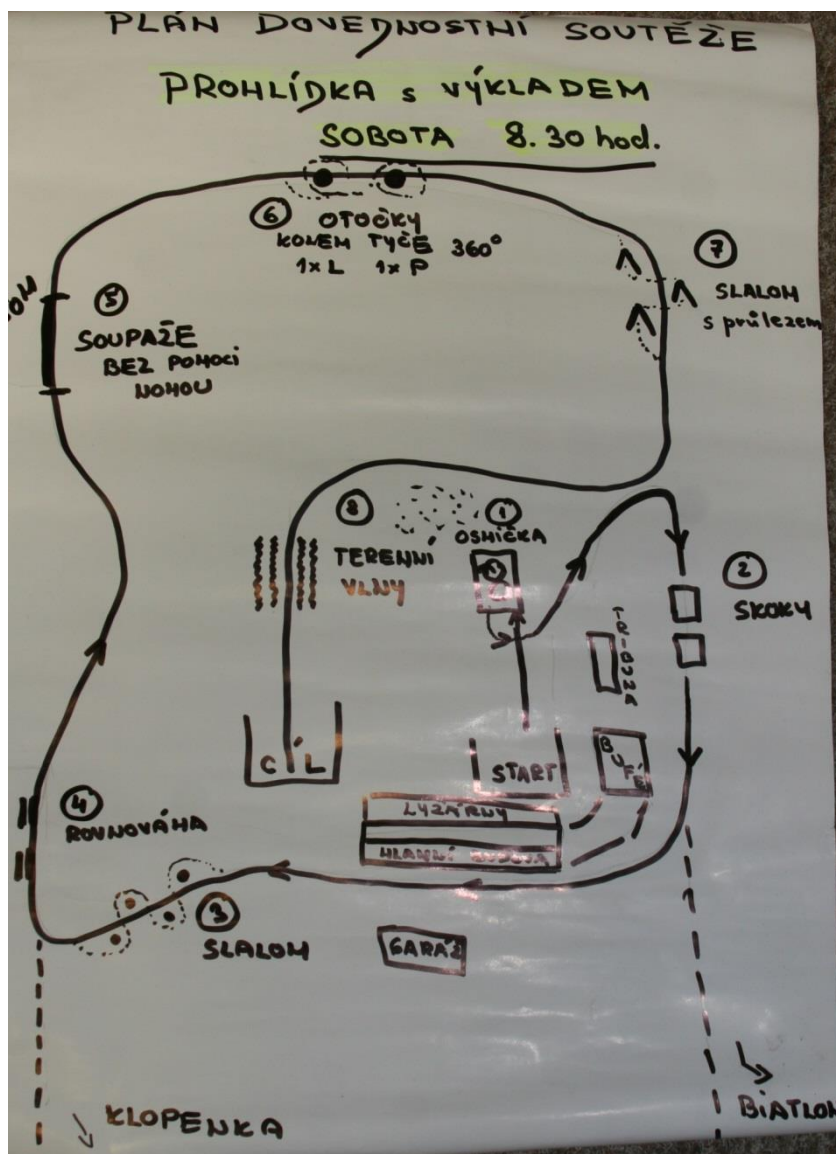 PLÁN DOVEDNOSTNÍ SOUTĚŽE
PROHLÍDKA s VÝKLADEM
SOBOTA 8.30 hod.
6 OTOČKY
KOLEM TYČE 360°
1x L 1x P
7
SLALOM
s průlezem
5
SOUPAŽE
BEZ POMOCI
NOHOU
8
TERENNÍ
VLNY
1
OSMIČKA
8
2
SKOKY
TRIBUNA
CÍL
START
BUFÉ
LYŽÁRNY
HLAVNÍ BUDOVA
4
ROVNOVÁHA
3
SLALOM
GARÁŽ
KLOPENKA
BIATLON